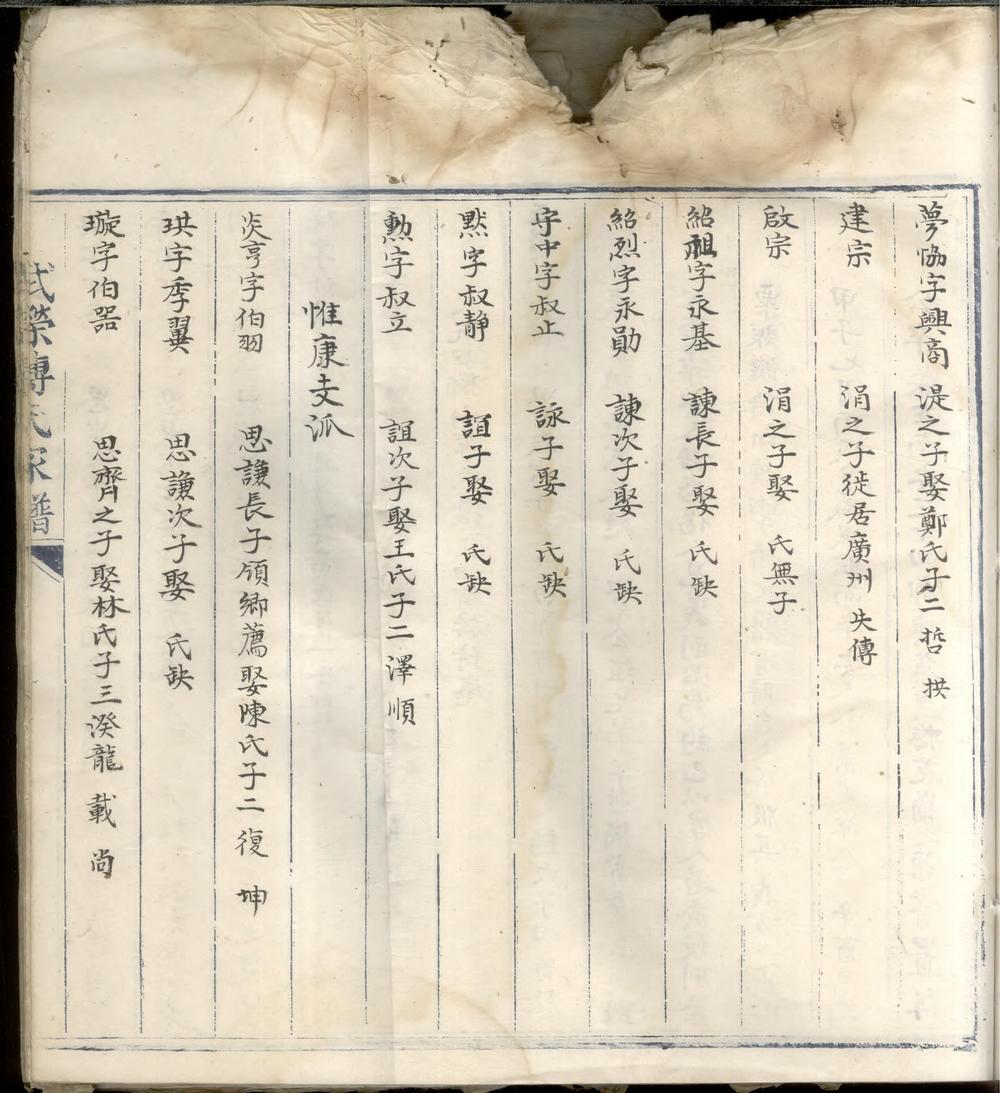 夢協字興商 湜之子娶鄭氏子二 哲 拱
建宗 涓之子徙居廣州 失傳
啟宗 涓之子娶 氏無子
紹祖字永基 諫長子娶 氏缺
紹烈字永勛 諫次子娶 氏缺
守中字叔止 詠子娶 氏缺
默字叔静 誼子娶 氏缺
勲字叔立 誼次子娶王氏子二 澤 順
惟康支派
炎亨字伯羽 思謙長子領鄉薦娶陳氏子二 復 坤
珙字季翼 思謙次子娶 氏缺
璇字伯器 思齊之子娶林氏子三 溪龍 載 尚
武榮傅氏家譜